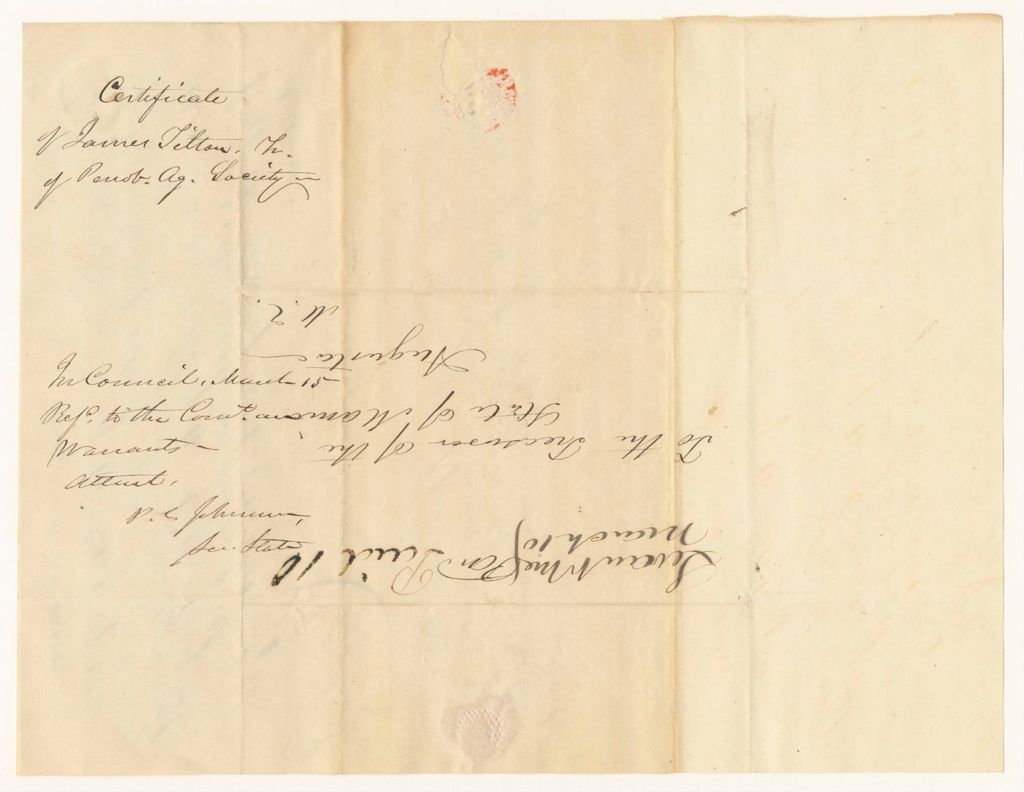 Certificate
of James Tilton, Tr.
of Penob. Ag. Society
In Council, March 15
Refd. to the Comee. on
Warrants
Attest,
P. C. Johnson,
Sec. State
Levant Me
March 10
Paid 10
To the Treasurer of the
State of Maine
Augusta
M. E.